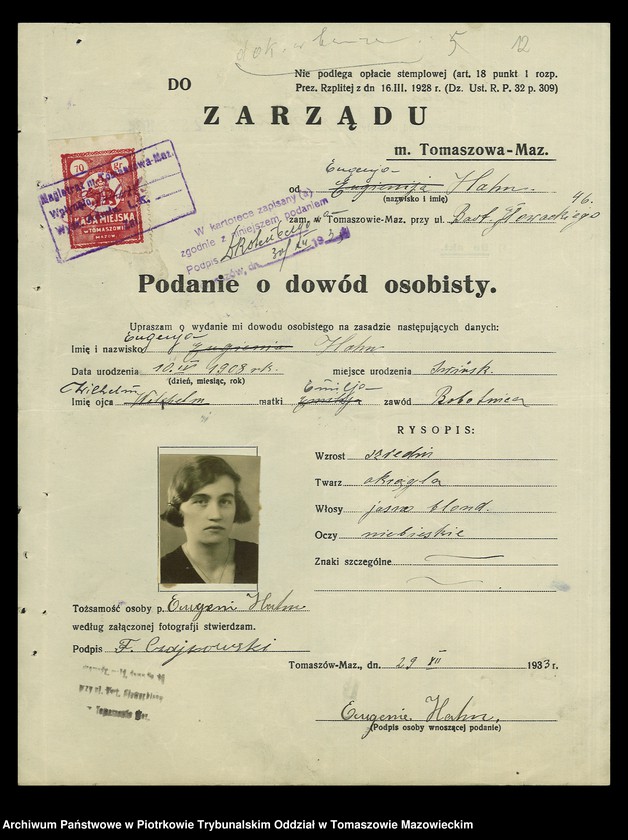 5 12
Nie podlega opłacie stemplowej (art. 18 punkt 1 rozp.
Prez. Rzplitej z dn 16.III. 1928 r. (Dz. Ust. R. P. 32 p. 309)
DO
ZARZĄDU
m. Tomaszowa-Maz.
Eugenja
od Eugienija Hahn.
(nazwisko i imię)
zam. w Tomaszowie-Maz. przy ul. Bart. Głowackiego 46.
70 gr
Magistrat m. Tomaszowa-Maz.
KASA MIEJSKA
w TOMASZOWIE
MAZOW.
W kartotece zapisany (a)
zgodnie z niniejszem podaniem
Podpis
Podanie o dowód osobisty.
Upraszam o wydanie mi dowodu osobistego na zasadzie następujących danych:
Eugenja
Imię i nazwisko Eugienia Hahn
Data urodzenia 10. 1908 rk. miejsce urodzenia
(dzień, miesiąc, rok)
Wilhelm Emilja
Imię ojca Wilhelm matki Emilja zawód Robotnica
RYSOPIS:
Wzrost szredni
Twarz okrągla
Włosy jasno blond.
Oczy niebieskie
Znaki szczególne
Tożsamość osoby p. Eugeni Hahn
według załączonej fotografji stwierdzam.
Podpis F.
Tomaszów-Maz., dn. 29 XII 1933 r.
Eugenie Hahn.
(Podpis osoby wnoszącej podanie)
Archiwum Państwowe w Piotrkowie Trybunalskim Oddział w Tomaszowie Mazowieckim